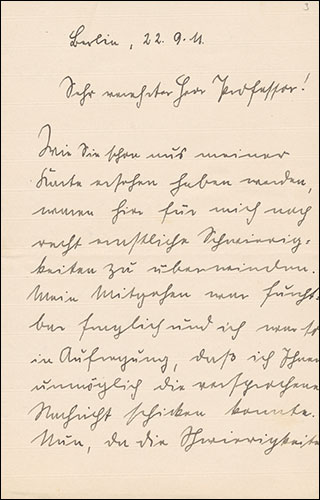 3
Berlin, 22. 9. 11.
Sehr verehrter Herr Professor!
Wie Sie schon aus meiner
Karte ersehen haben werden,
waren hier für mich noch
recht ernstliche Schwierig-
keiten zu überwinden.
Mein Mitgehen war furcht-
bar fraglich und ich war so
in Aufregung, daß ich Ihnen
unmöglich die versprochene
Nachricht schicken konnte.
Nun, da die Schwierigkeiten